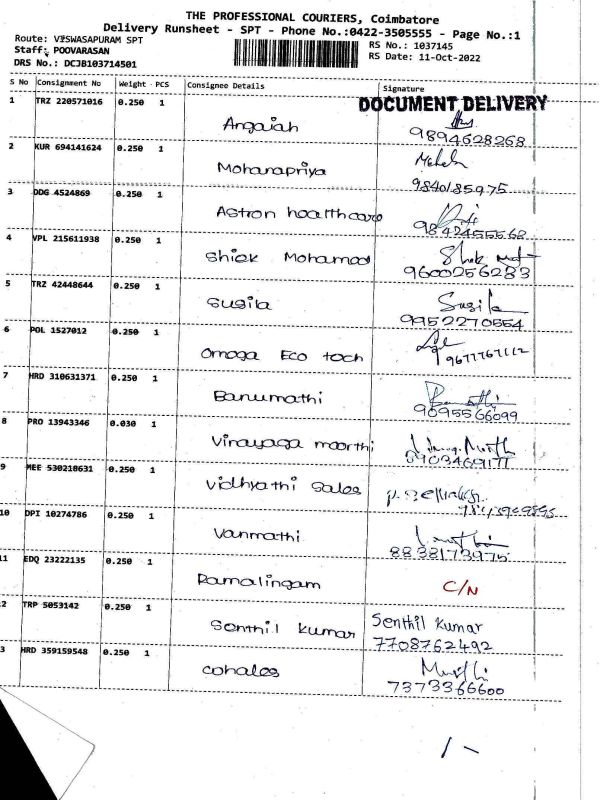 THE PROFESSIONAL COURIERS, Coimbatore
Delivery Runsheet - SPT - Phone No.:0422-3505555 - Page No.:1
Route: VISWASAPURAM SPT
RS No.: 1037145
Staff: POOVARASAN
RS Date: 11-Oct-2022
DRS No.: DCJB103714501
S No Consignment No Weight PCS Consignee Details Signature
DOCUMENT DELIVERY
1 TRZ 220571016 0.250 1
Angaiah
9894628268
2 KUR 694141624 0.250 1
Mohanapriya
9840185975
3 DDG 4524869 0.250 1
Astron healthcare
9842455562
4 VPL 215611938 0.250 1
Shiek Mohamed
9600256233
5 TRZ 42448644 0.250 1
Susila Susila
9952270554
6 POL 1527012 0.250 1
Omega Eco tech 9677767112
7 HRD 310631371 0.250 1
Banumathi
9095566099
8 PRO 13943346 0.030 1
Vinayaga moorthi
9 MEE 530218631 0.250 1
Vidhyathi Sales
10 DPI 10274786 0.250 1
Vanmathi
8838173975
11 EDQ 23222135 0.250 1
Ramalingam C/N
2 TRP 5053142 0.250 1
Senthil kumar Senthil Kumar
7708762492
3 HRD 359159548 0.250 1
cohales
7373366600